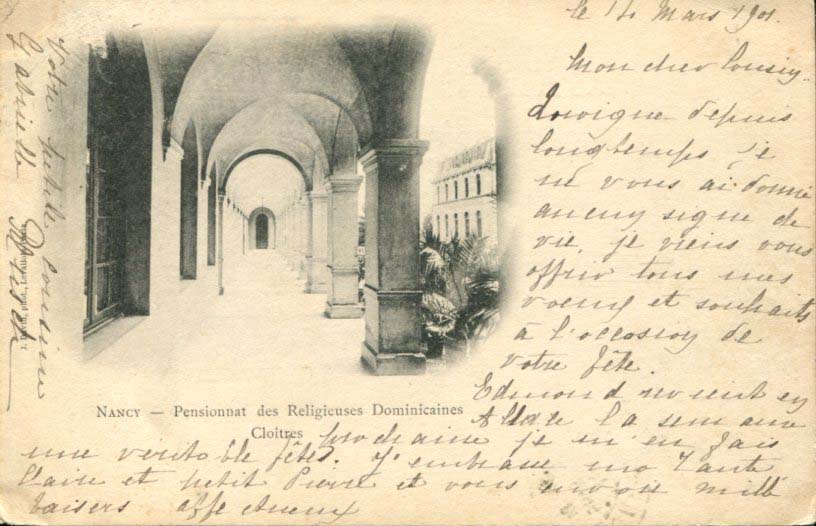 le 14 Mars 1901.
Mon cher Cousin,
Quoique depuis
longtemps je
ne vous ai donné
aucun signe de
vie, je viens vous
offrir tous mes
voeux et souhaits
à l'occasion de
votre fête.
Edmond revient en
la semaine
prochaine je m'en fais
une veritable fête. J'embrasse ma Tante
Claire et petit Pierre et vous envoie mille
baisers affectueux
Votre petite cousine
Gabrielle
NANCY — Pensionnat des Religieuses Dominicaines
Cloîtres